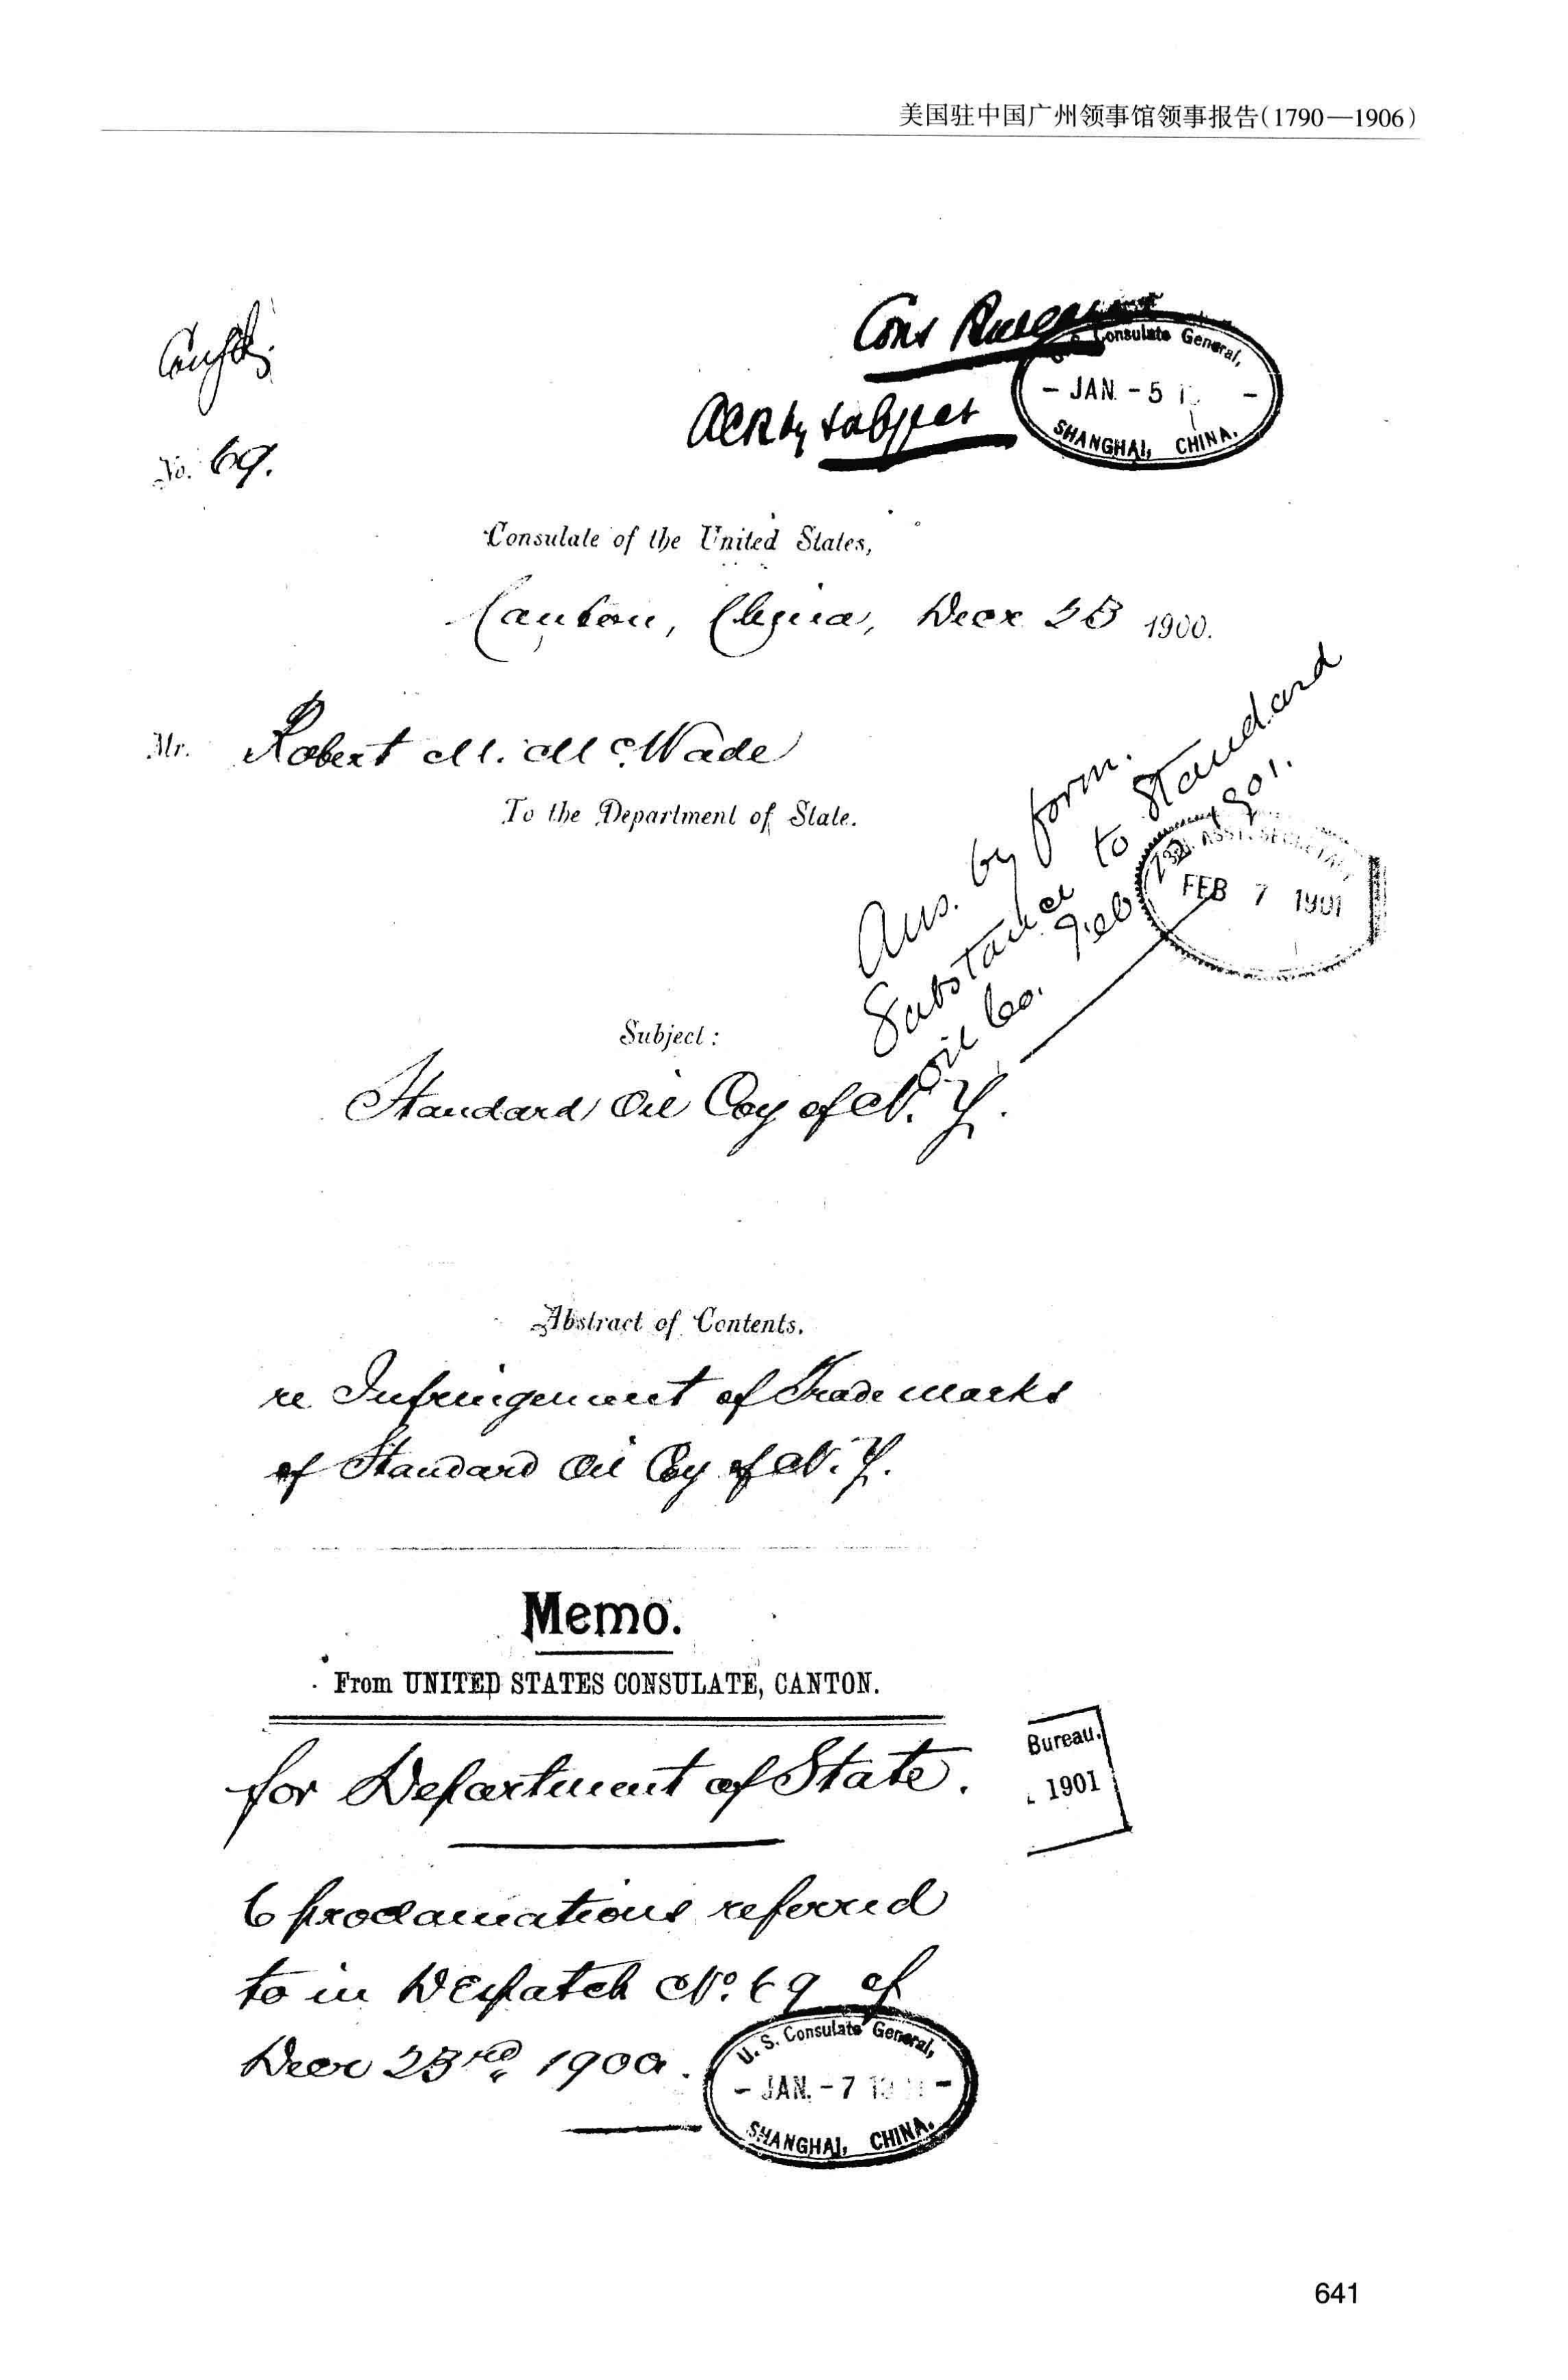 美国驻中国广州领事馆领事报告(1790—1906)
Cons Bureau
Ack by subject
U. S. Consulate General,
- JAN. - 5 1 -
SHANGHAI, CHINA.
No. 69.
Consulate of the United States,
Canton, China, Decr 23 1900.
Mr. Robert M. McWade
To the Department of State.
Ans. by form.
Substance to Standard
Oil Co. Feb 1901.
3RD ASST. SECRETARY
FEB 7 1901
Subject:
Standard Oil Coy of N. Y.
Abstract of Contents.
re Infringement of Trade marks
of Standard Oil Coy of N. Y.
Memo.
From UNITED STATES CONSULATE, CANTON.
for Department of State.
Bureau.
1901
6 proclamations referred
to in Despatch No. 69 of
Decr 23rd, 1900.
U. S. Consulate General,
- JAN. - 7 19 1 -
SHANGHAI, CHINA.
641